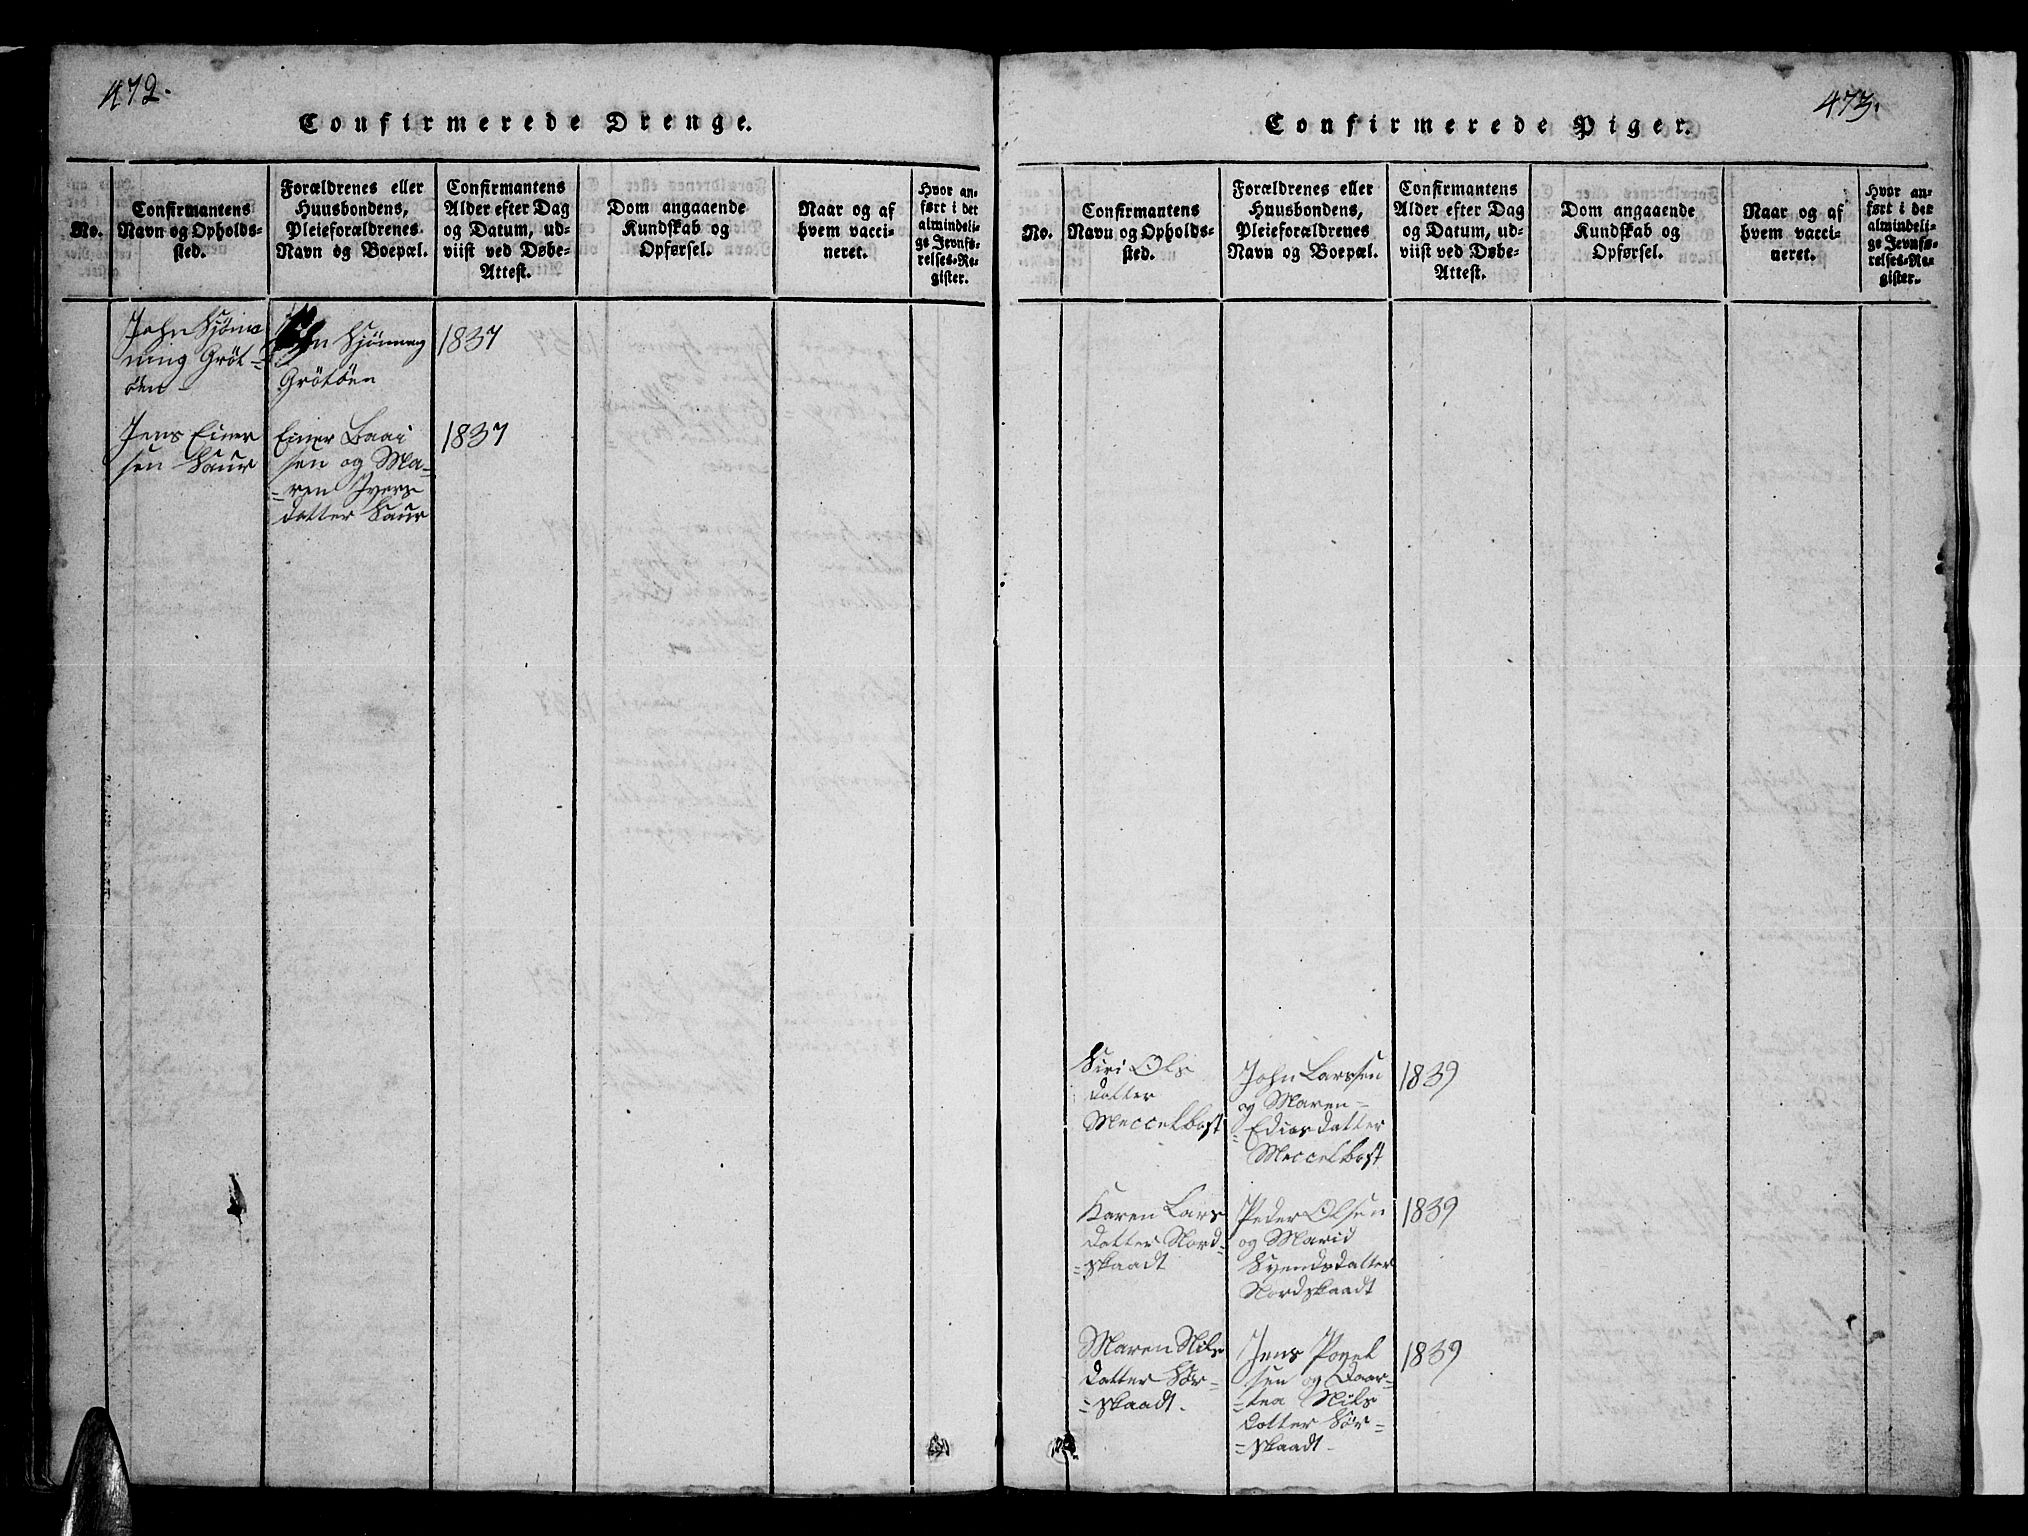 472.
Confirmerede Drenge.
No.
Confirmantens
Navn og Opholds-
sted.
Forældrenes eller
Huusbondens,
Pleieforældrenes
Navn og Boepæl.
Confirmantens
Alder efter Dag
og Datum, ud-
viist ved Døbe-
Attest.
Dom angaaende
Kundskab og
Opførsel.
Naar og af
hvem vacci-
neret.
Hvor an-
ført i det
almindeli-
ge Jevnfø-
relses-Re-
gister.
John
ning Gröt-
öen
Grötöen
1837
Jens Einer
sen Saur
Einer Baai
sen og Ma-
=ren Ivers
datter Saur
1837
473.
Confirmerede Piger.
No.
Confirmantens
Navn og Opholds-
sted.
Forældrenes eller
Huusbondens,
Pleieforældrenes
Navn og Boepæl.
Confirmantens
Alder efter Dag
og Datum, ud-
viist ved Døbe-
Attest.
Dom angaaende
Kundskab og
Opførsel.
Naar og af
hvem vacci-
neret.
Hvor an-
ført i det
almindeli-
ge Jevnfø-
relses-Re-
gister.
Siri Ols
datter
Meccelbost
John Larssen
og Maren-
=Ediasdatter
Meccelbost
1839
Karen Lars
datter Nord-
=skaadt
Peder Olsen
og Marid
Svendsdatter
Nordskaadt
1839
Maren Nils
datter Sör-
=skaadt.
Jens Povel
sen og Daar-
=tea Nils
datter Sör-
=skaadt
1839